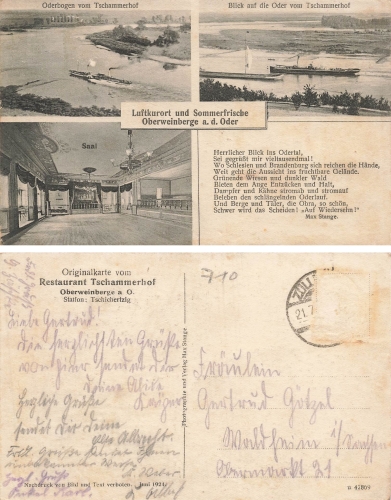 Oderbogen vom Tschammerhof
Blick auf die Oder vom Tschammerhof
Luftkurort und Sommerfrische
Oberweinberge a. d. Oder
Saal
Herrlicher Blick ins Odertal,
Sei gegrüßt mir vieltausendmal!
Wo Schlesien und Brandenburg sich reichen die Hände,
Weit geht die Aussicht ins fruchtbare Gelände.
Grünende Wiesen und dunkler Wald
Bieten dem Auge Entzücken und Halt,
Dampfer und Kähne stromab und stromauf
Beleben den schlängelnden Oderlauf.
Und Berge und Täler, die Obra, so schön,
Schwer wird das Scheiden! „Auf Wiedersehn!"
Max Stange.
Originalkarte vom
Restaurant Tschammerhof
Oberweinberge a O.
Station: Tschicherzig
710
ZÜLL
21.7
Liebe Gertrud!
Die herzlichsten Grüße
von hier sendet Dir
Deine
Herzliche Grüße
sendet Dir Deine
Photographie und Verlag Max Stange
Fräulein
Gertrud Götzel
Waldheim i/Sachsen
Obermarkt 21
Nachdruck von Bild und Text verboten. Juni 1924
u 42809